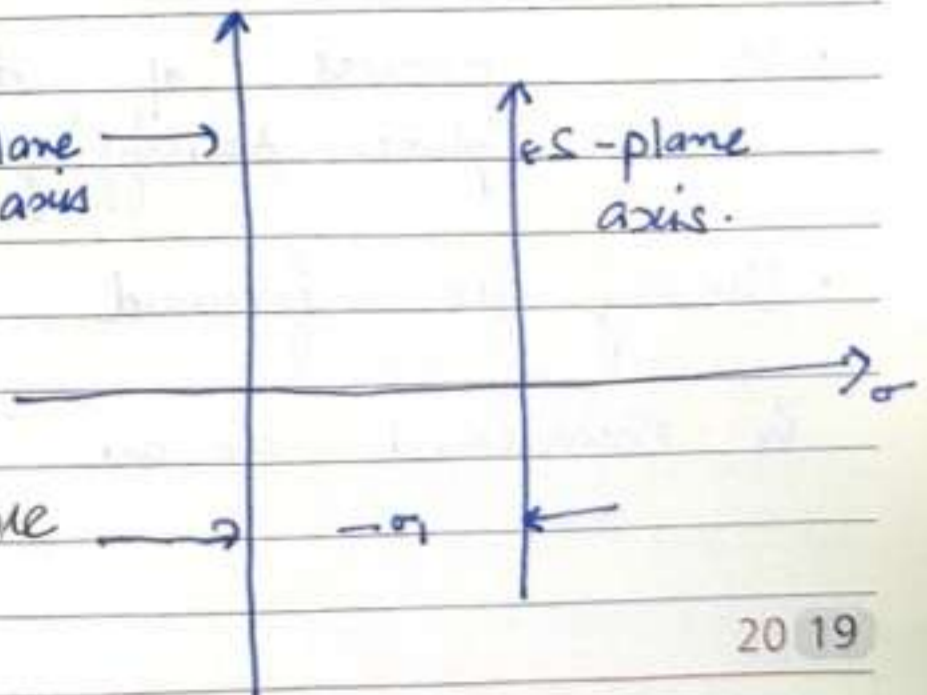 lane
axis
S-plane
axis.
σ
ue
-σ₁
20 19